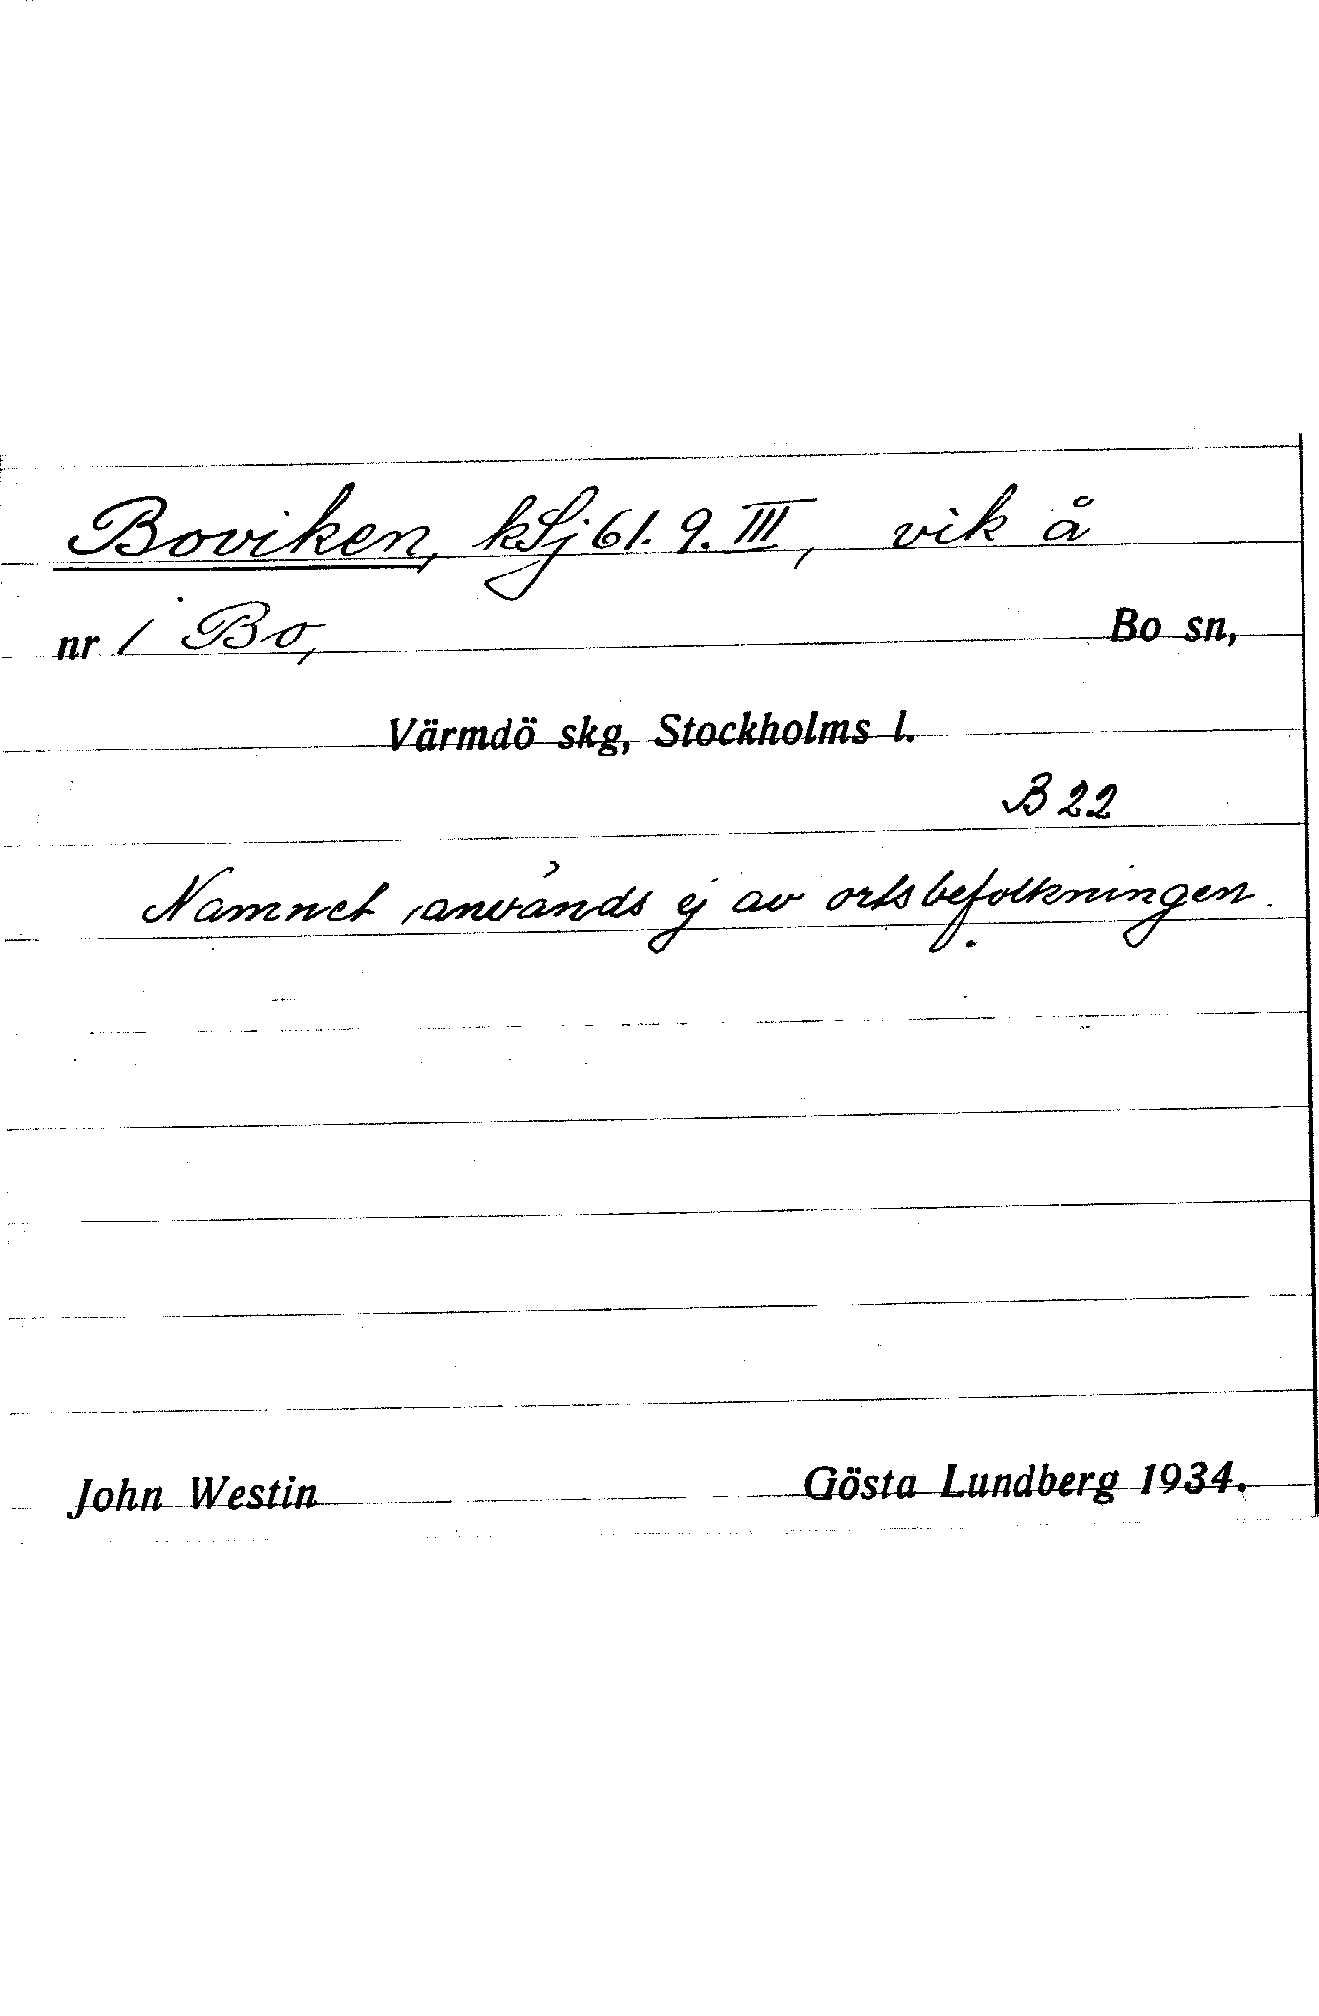 Boviken, kSj 61. 9. III, vik å
nr 1 Bo, Bo sn,
Värmdö skg, Stockholms l.
B 22
Namnet används ej av ortsbefolkningen.
John Westin Gösta Lundberg 1934.